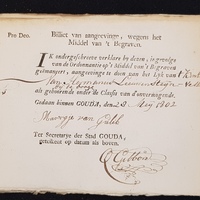 Pro Deo.
Billet van aangevinge, wegens het
Middel van 't Begraven.
IK ondergeschreeve verklare by deezen, in gevolge
van de Ordonnantie op 't Middel van 't Begraven
geëmaneert, aangevinge te doen van het Lyk van 't kint
van Hermanus
als gehoorende onder de Classis van d'onvermogende.
Gedaan binnen GOUDA, den 3 Mey 1802
van
Ter Secretarye der Stad GOUDA,
getekent op datum als boven.